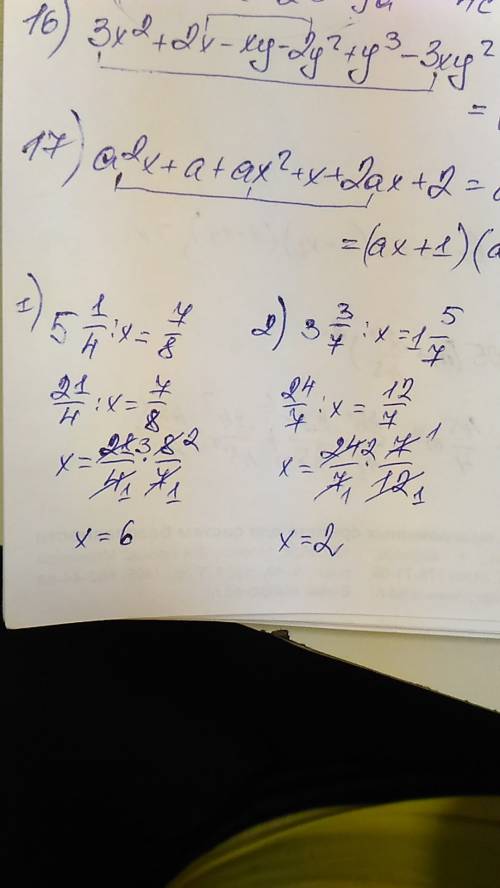 16) 3x² + 2x - xy - 2y² + y³ - 3xy²
=
17) a²x + a + ax² + x + 2ax + 2 =
= (ax + 1) (a
1) 5 1/4 : x = 7/8
21/4 : x = 7/8
x = 21 3/4 1 · 8 2/7 1
x = 6
2) 3 3/7 : x = 1 5/7
24/7 : x = 12/7
x = 24 2/7 1 · 7 1/12 1
x = 2